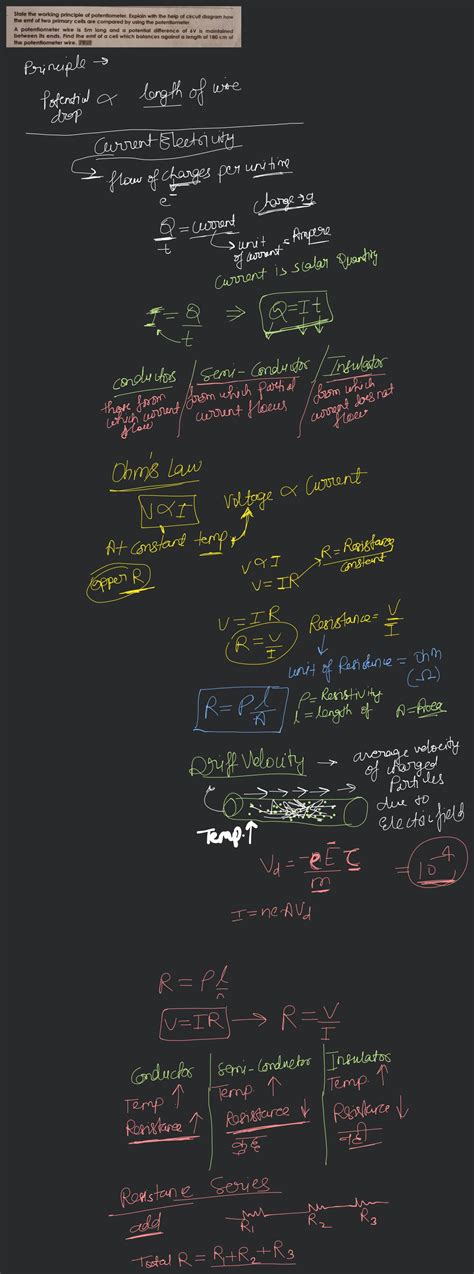 State the working principle of potentiometer. Explain with the help of circuit diagram how
the emf of two primary cells are compared by using the potentiometer.
A potentiometer wire is 5m long and a potential difference of 6V is maintained
between its ends. Find the emf of a cell which balances against a length of 180 cm of
the potentiometer wire.
Principle →
Potential drop ∝ length of wire
Current Electricity
→ flow of charges per unit time
e⁻
Q/t = current
charge → q
unit of current = Ampere
Current is scalar Quantity
I = Q/t ⇒ Q = It
conductors / Semi-Conductor / Insulator
those from which current flow
from which partial current flows
from which current does not flow
Ohm's Law
V ∝ I
Voltage ∝ Current
At constant temp.
V ∝ I
V = IR
R = Resistance
constant
V = IR
R = V/I
Resistance = V/I
unit of Resistance = Ohm
(Ω)
R = ρ l/A
ρ = Resistivity
l = length of
A = Area
Drift Velocity → average velocity
of charged
Particles
due to
Electric field
Temp. ↑
Vd = -eE τ/m = 10⁻⁴
I = neAVd
R = ρ l/A
V = IR → R = V/I
Conductor
Temp ↑
Resistance ↑
Semi-Conductor
Temp. ↑
Resistance ↓
Insulators
Temp. ↑
Resistance ↓
Resistance Series
add
R1 R2 R3
Total R = R1 + R2 + R3